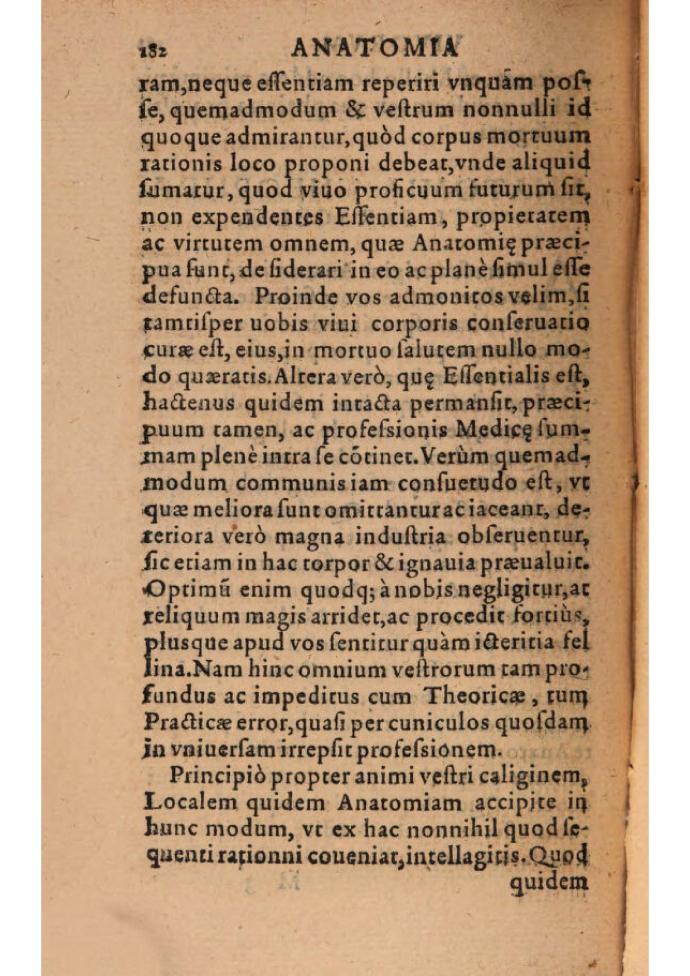 182 ANATOMIA
ram,neque eſſentiam reperiri vnquám poſ-
ſe, quemadmodum & veſtrum nonnulli id
quoque admirantur,quòd corpus mortuum
rationis loco proponi debeat,vnde aliquid
ſumatur, quod viuo proficuum futurum ſit,
non expendentes Eſſentiam, propietatem
ac virtutem omnem, quæ Anatomię præci-
pua ſunt, deſiderari in eo ac planè ſimul eſſe
defuncta. Proinde vos admonitos velim,ſi
tamtiſper uobis viui corporis conſeruatio
curæ eſt, eius,in mortuo ſalutem nullo mo-
do quæratis.Altera verò, quę Eſſentialis eſt,
hactenus quidem intacta permanſit, præci-
puum tamen, ac profeſsionis Medicę ſum-
mam plenè intra ſe cõtinet.Verùm quemad-
modum communis iam conſuetudo eſt, vt
quæ meliora ſunt omittantur ac iaceant, de-
teriora verò magna induſtria obſeruentur,
ſic etiam in hac torpor & ignauia præualuit.
Optimũ enim quodq; à nobis negligitur,at
reliquum magis arridet,ac procedit fortiùs,
plusque apud vos ſentitur quàm icteritia fel
lina.Nam hinc omnium veſtrorum tam pro-
fundus ac impeditus cum Theoricæ, tum
Practicæ error,quaſi per cuniculos quoſdam
in vniuerſam irrepſit profeſsionem.
Principiò propter animi veſtri caliginem,
Localem quidem Anatomiam accipite in
hunc modum, vt ex hac nonnihil quod ſe-
quenti rationni coueniat,intellagitis.Quod
quidem